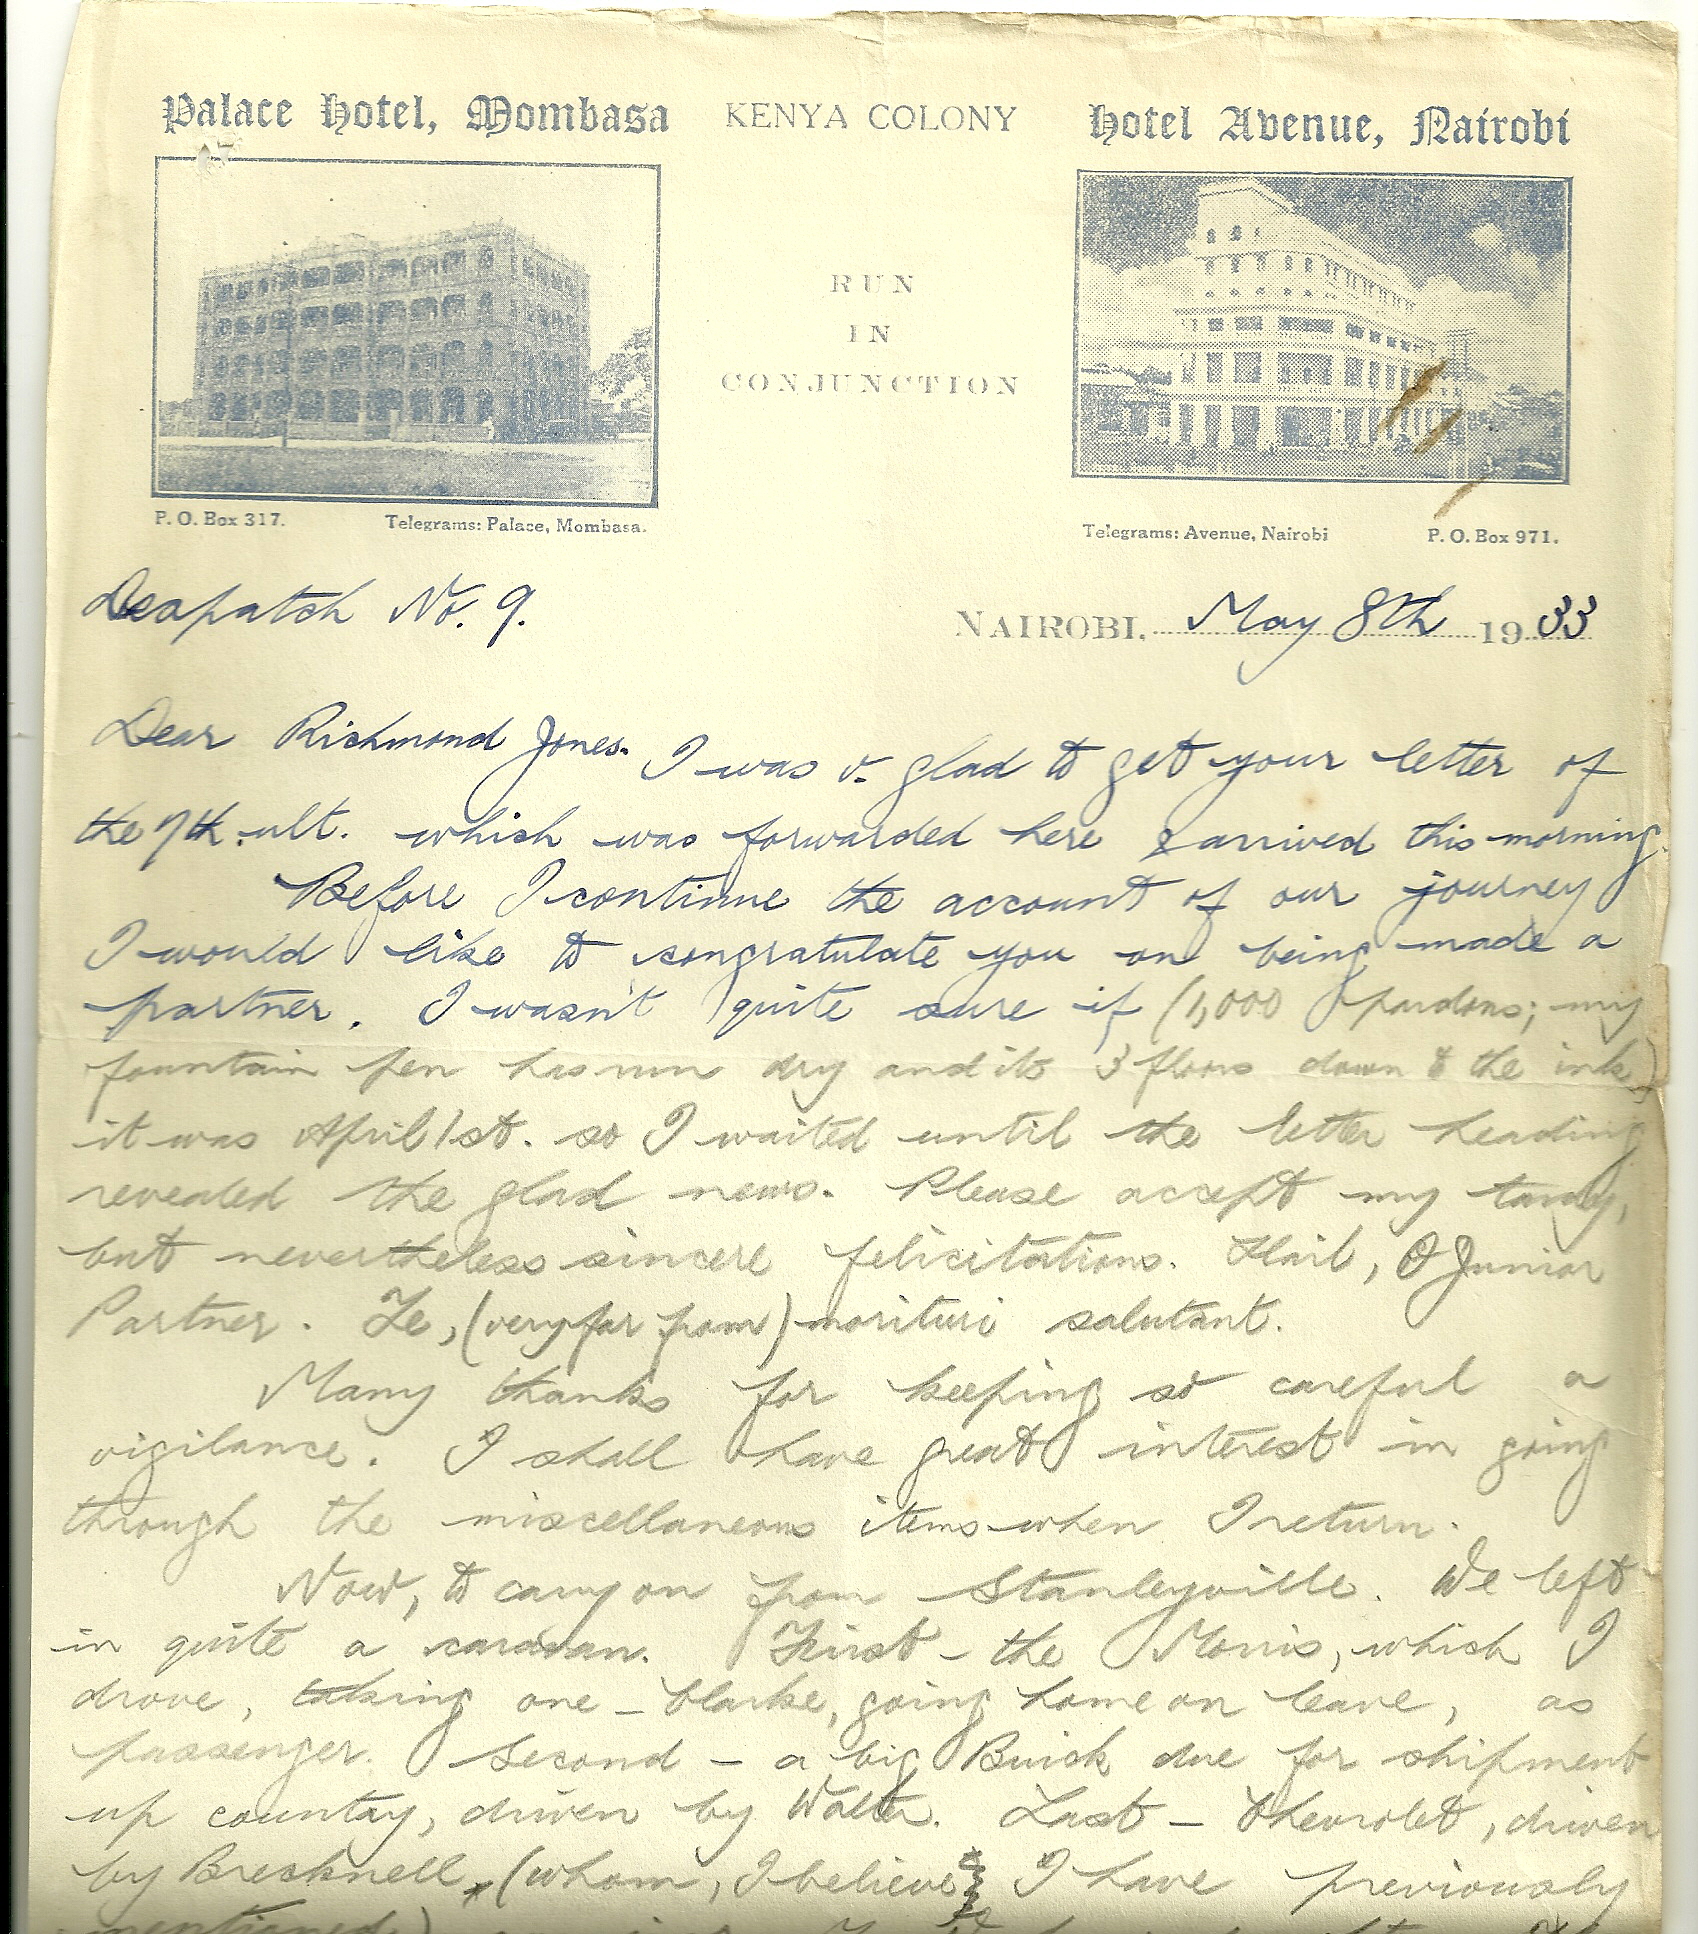 Palace Hotel, Mombasa KENYA COLONY Hotel Avenue, Nairobi
RUN
IN
CONJUNCTION
P. O. Box 317. Telegrams: Palace, Mombasa.
Telegrams: Avenue, Nairobi P. O. Box 971.
Despatch No. 9.
NAIROBI, May 8th 1933
Dear Richmond Jones. I was v. glad to get your letter of
the 7th. ult. which was forwarded here & arrived this morning.
Before I continue the account of our journey
I would like to congratulate you on being made a
partner. I wasn't quite sure if (1,000 pardons; my
fountain pen has run dry and its 3 floors down to the ink)
it was April 1st. so I waited until the letter heading
revealed the glad news. Please accept my tardy,
but nevertheless sincere felicitations. Hail, O Junior
Partner. Te, (very far from) morituri salutant.
Many thanks for keeping so careful a
vigilance. I shall have great interest in going
through the miscellaneous items when I return.
Now, to carry on from Stanleyville. We left
in quite a caravan. First - the Morris, which I
drove, taking one - Clarke, going home on leave, as
passenger. Second - a big Buick due for shipment
up country, driven by Walter. Last - Chevrolet, driven
by Brecknell, (whom, I believe I have previously
mentioned)